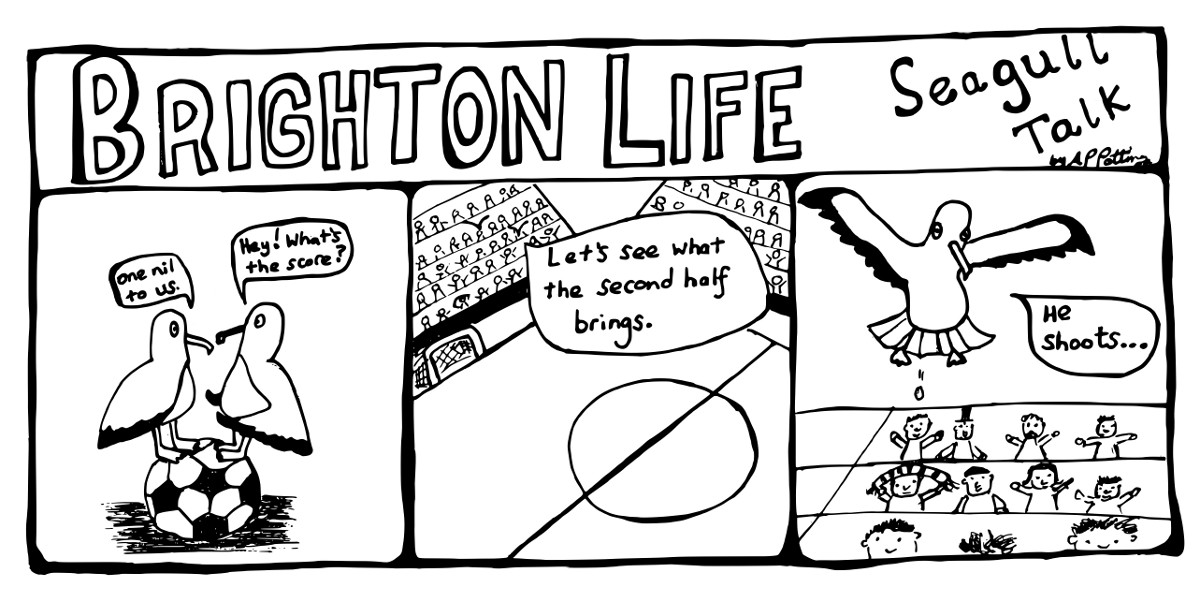 BRIGHTON LIFE
Seagull
Talk
by A P Potting
Hey! What's
the score?
one nil
to us.
Let's see what
the second half
brings.
He
shoots...